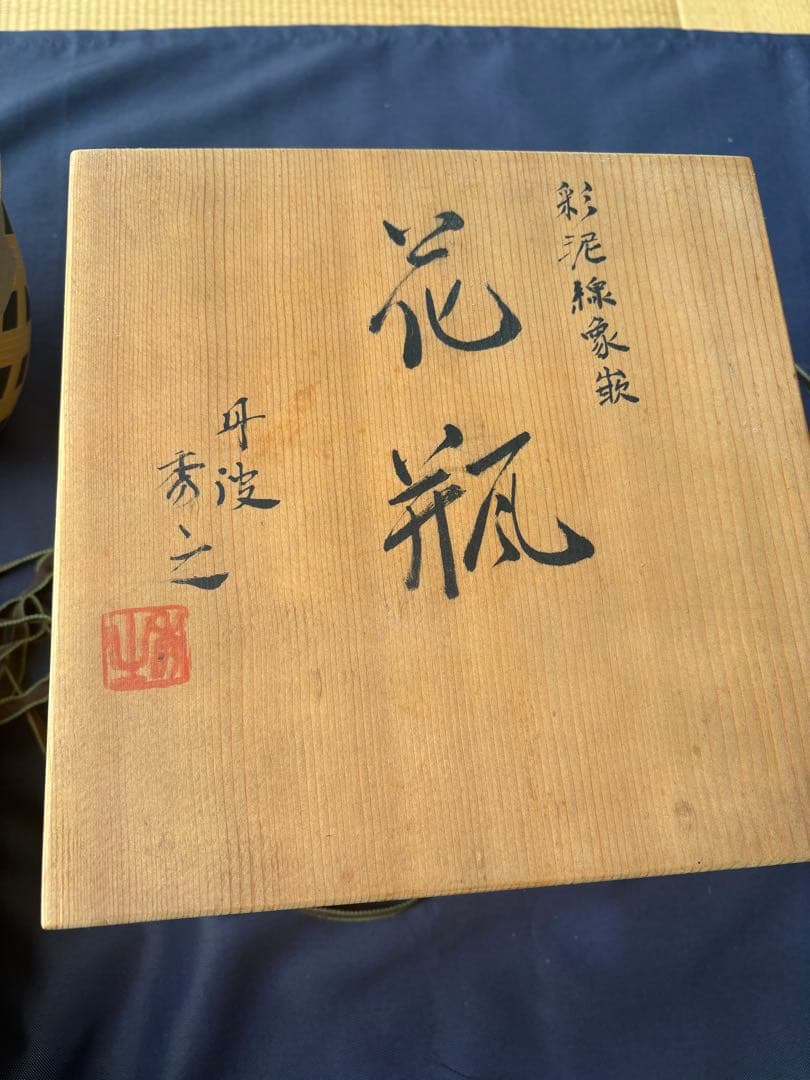 彩泥線象嵌
花瓶
丹波
秀之